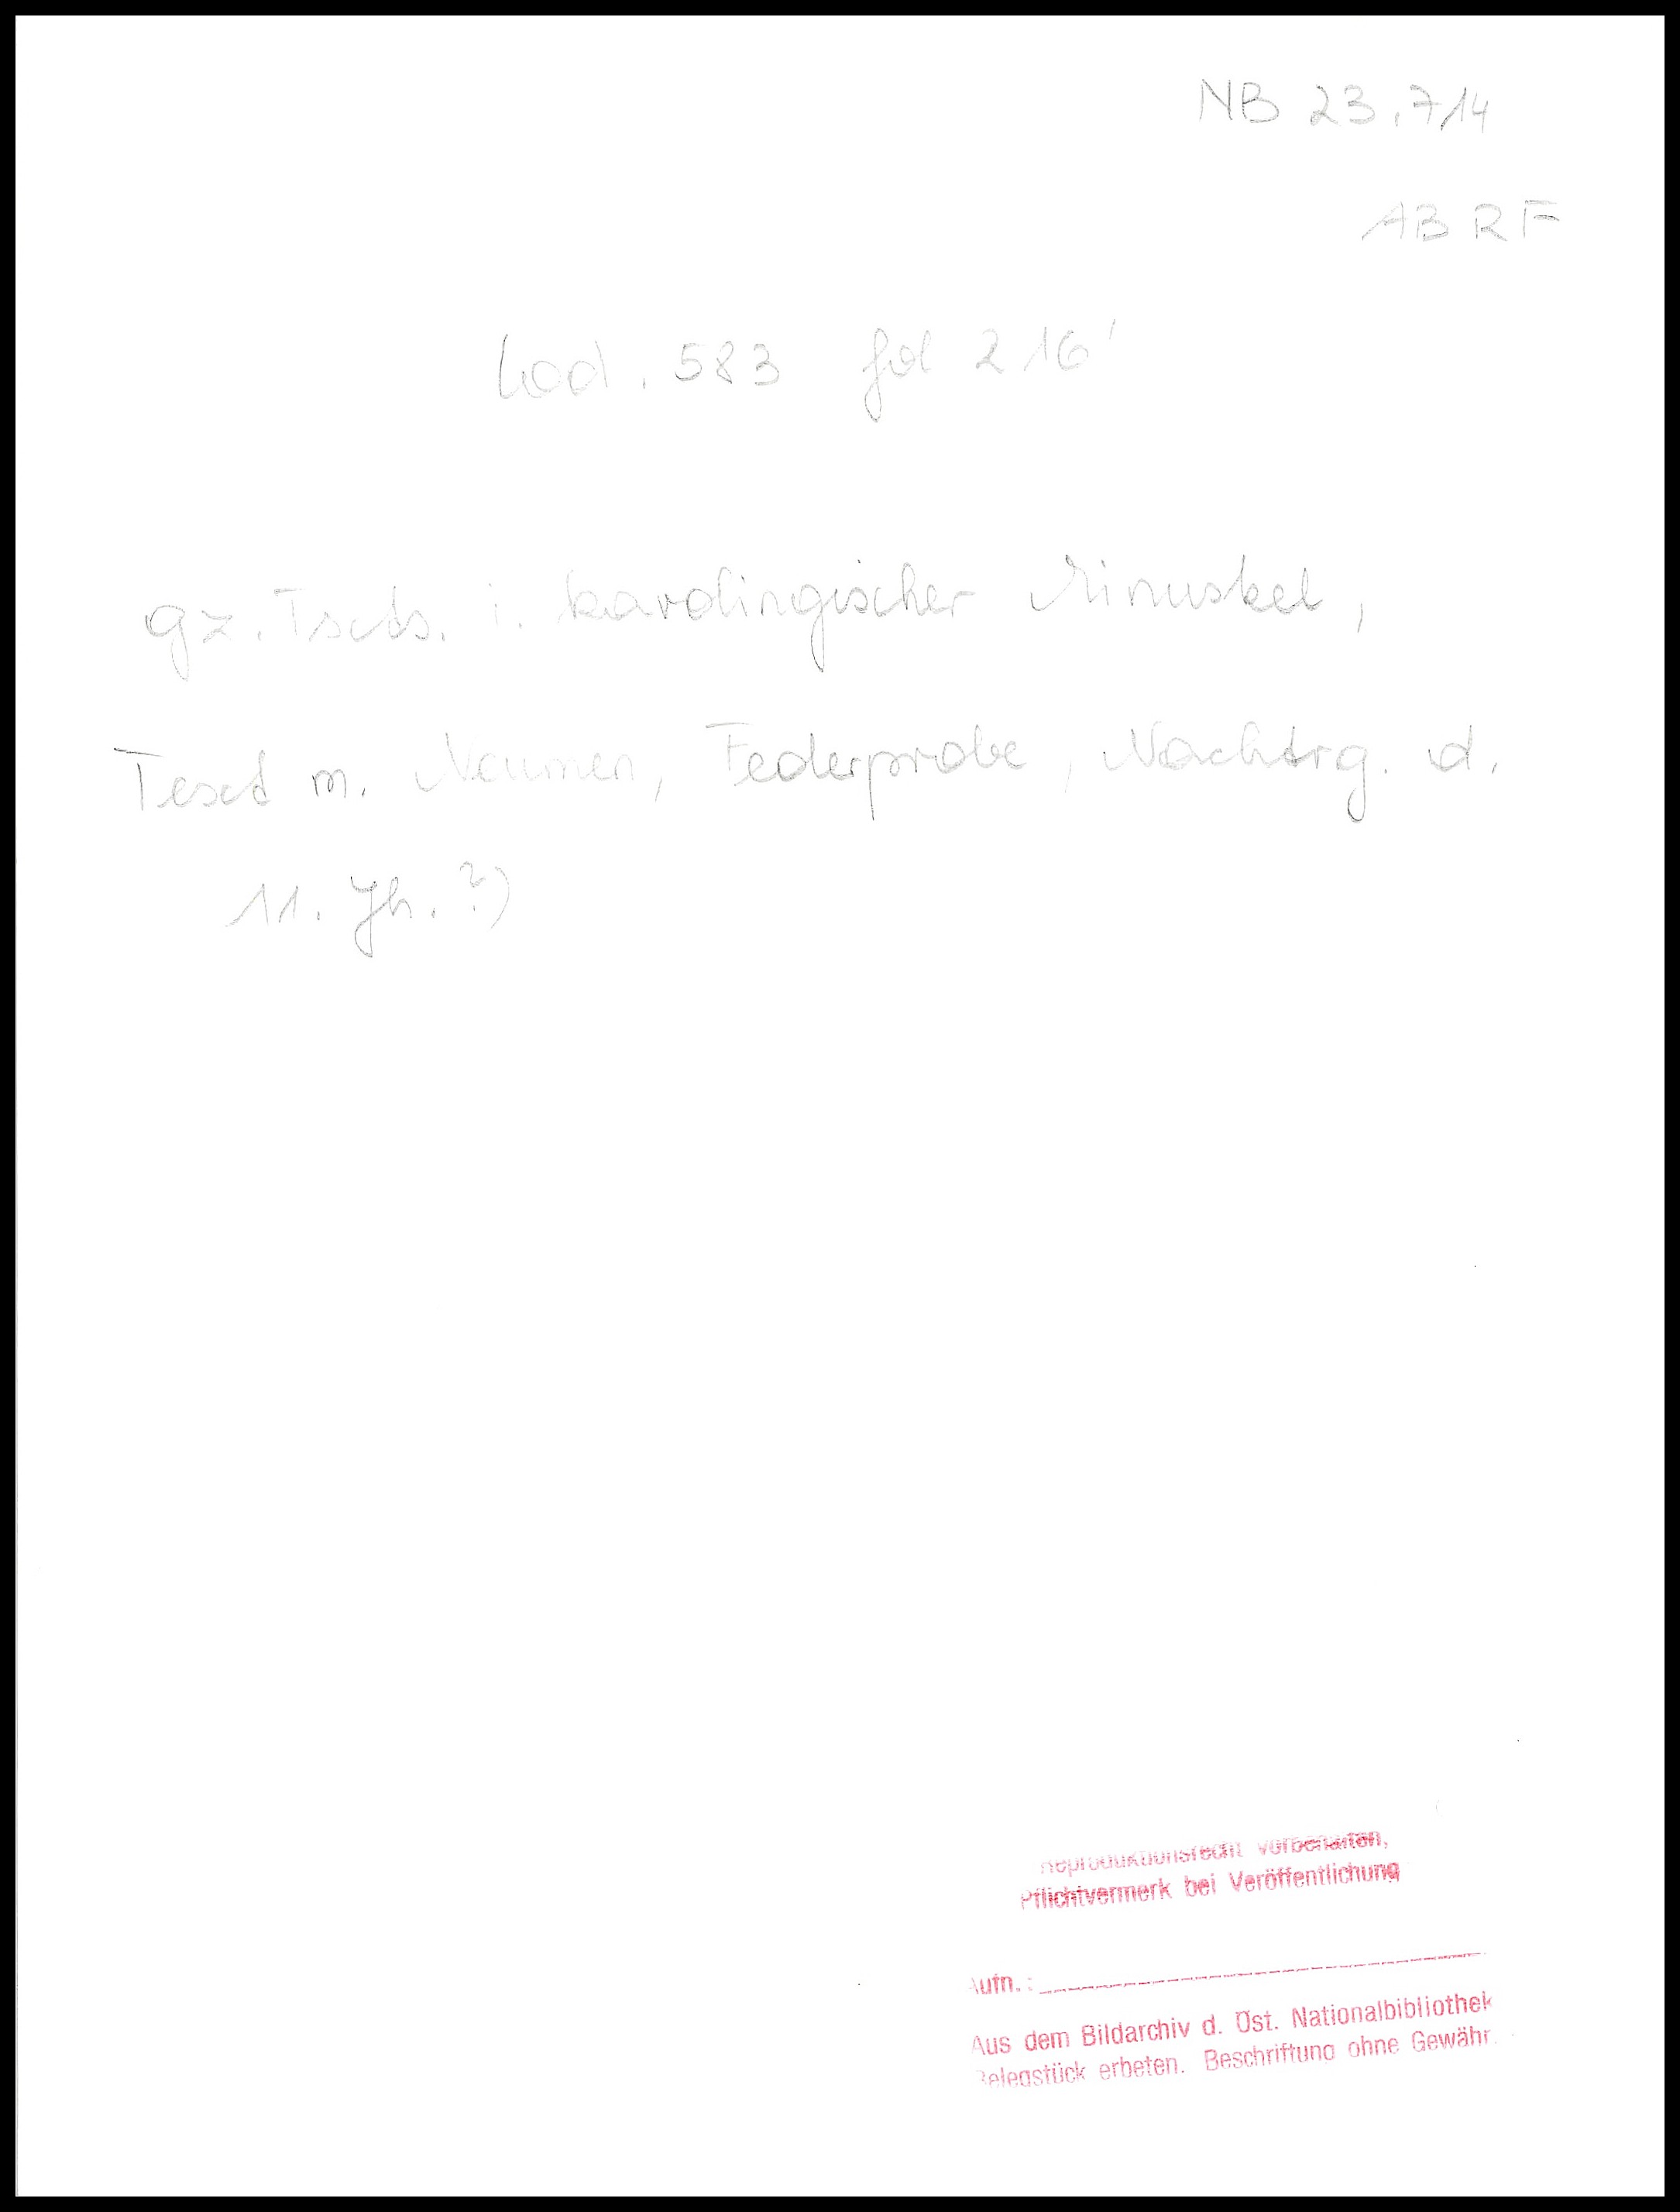 NB 23.714
ABRF
Cod. 583 fol 216'
gz. Txts. i. karolingischer Minuskel,
Text m. Neumen, Federprobe, Nachtrg. d.
11. Jh. ?)
Reproduktionsrecht vorbehalten,
Pflichtvermerk bei Veröffentlichung
Aufn.:
Aus dem Bildarchiv d. Öst. Nationalbibliothek
Belegstück erbeten. Beschriftung ohne Gewähr.